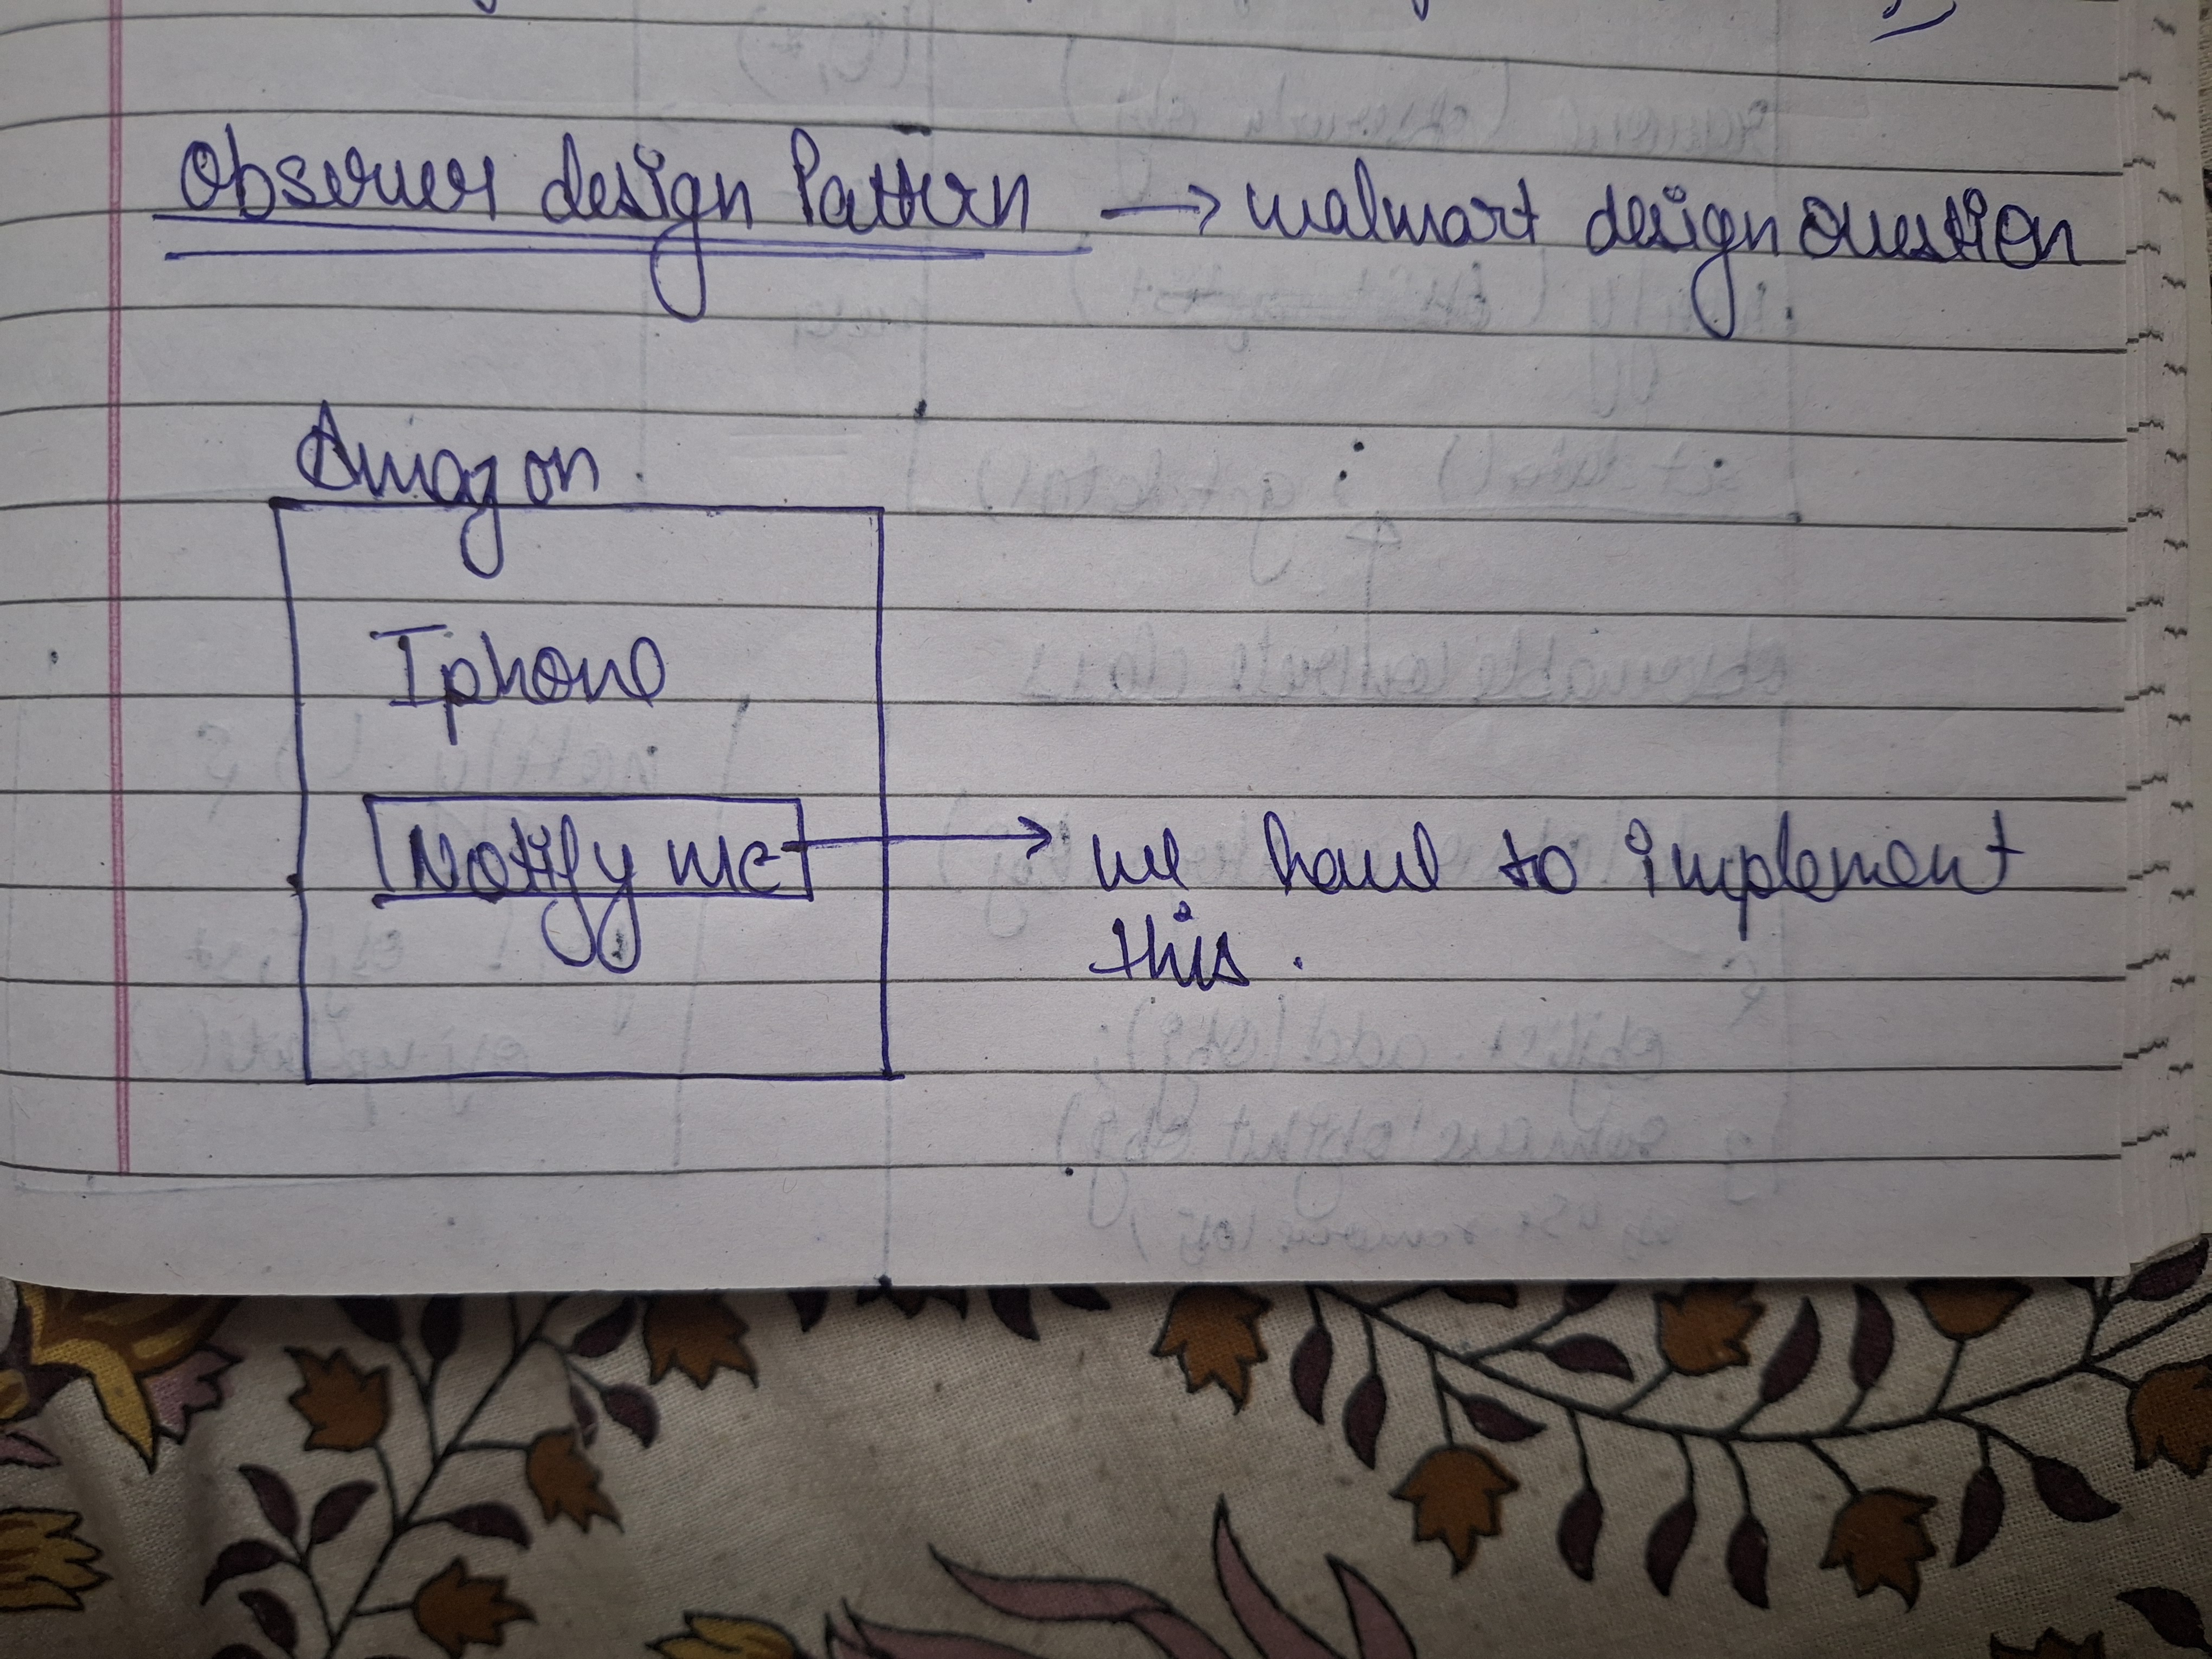 Observer design Pattern → walmart design Question
Amazon
Iphone
Notify me → we have to implement
this.